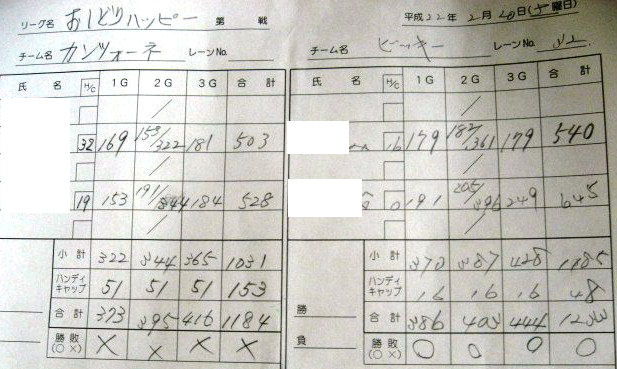 リーグ名 おしどりハッピー 第 戦 平成22年2月20日(土曜日)
チーム名 カンツォーネ レーンNo. チーム名 ビッキー レーンNo. 32
氏 名 H/C 1G 2G 3G 合計 氏 名 H/C 1G 2G 3G 合計
32 169 153/322 181 503 16 179 182/361 179 540
19 153 191/344 184 528 0 191 205/396 249 645
小計 322 344 365 1031 小計 370 387 428 1185
ハンディキャップ 51 51 51 153 ハンディキャップ 16 16 16 48
合計 373 395 416 1184 合計 386 403 444 1233
勝敗(○×) × × × × 勝 負 勝敗(○×) ○ ○ ○ ○